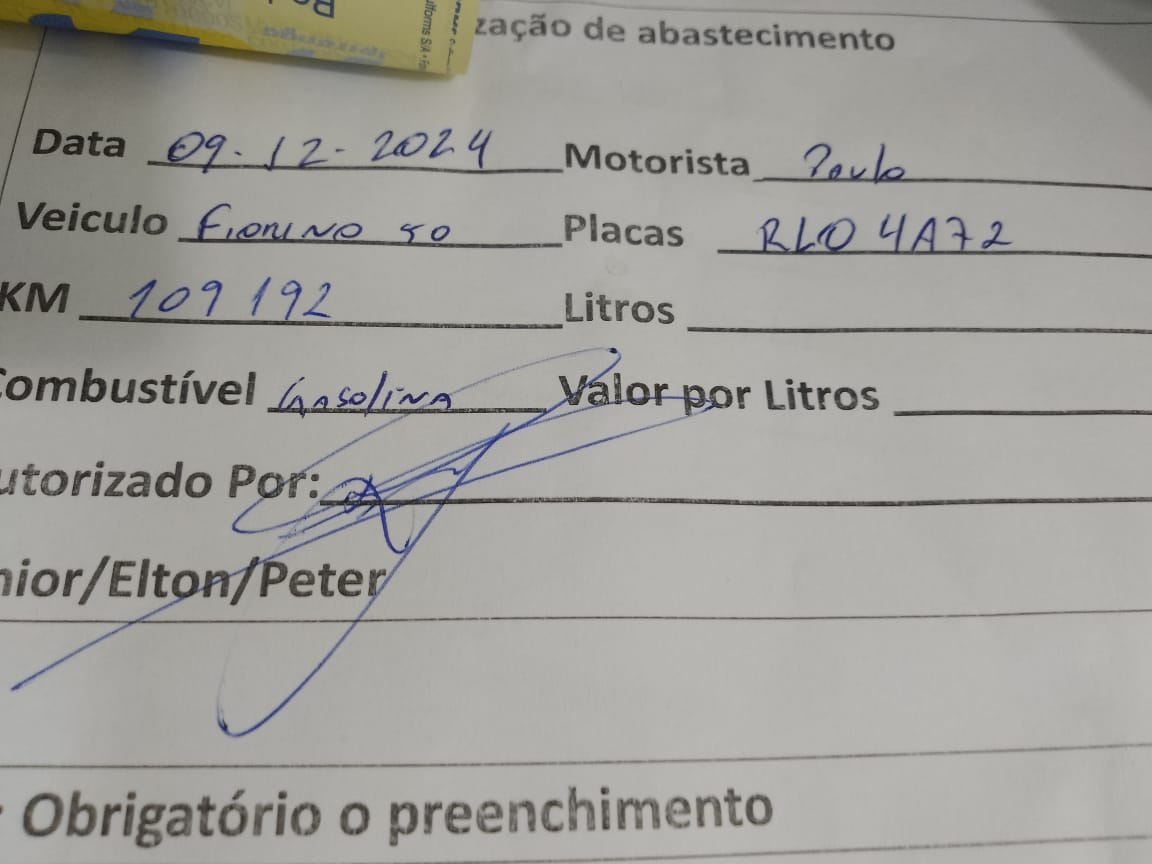 zação de abastecimento
Data 09-12-2024 Motorista Paulo
Veiculo Fiorino 50 Placas RLO 4A72
KM 109 192 Litros
Combustível Gasolina Valor por Litros
utorizado Por:
nior/Elton/Peter
Obrigatório o preenchimento